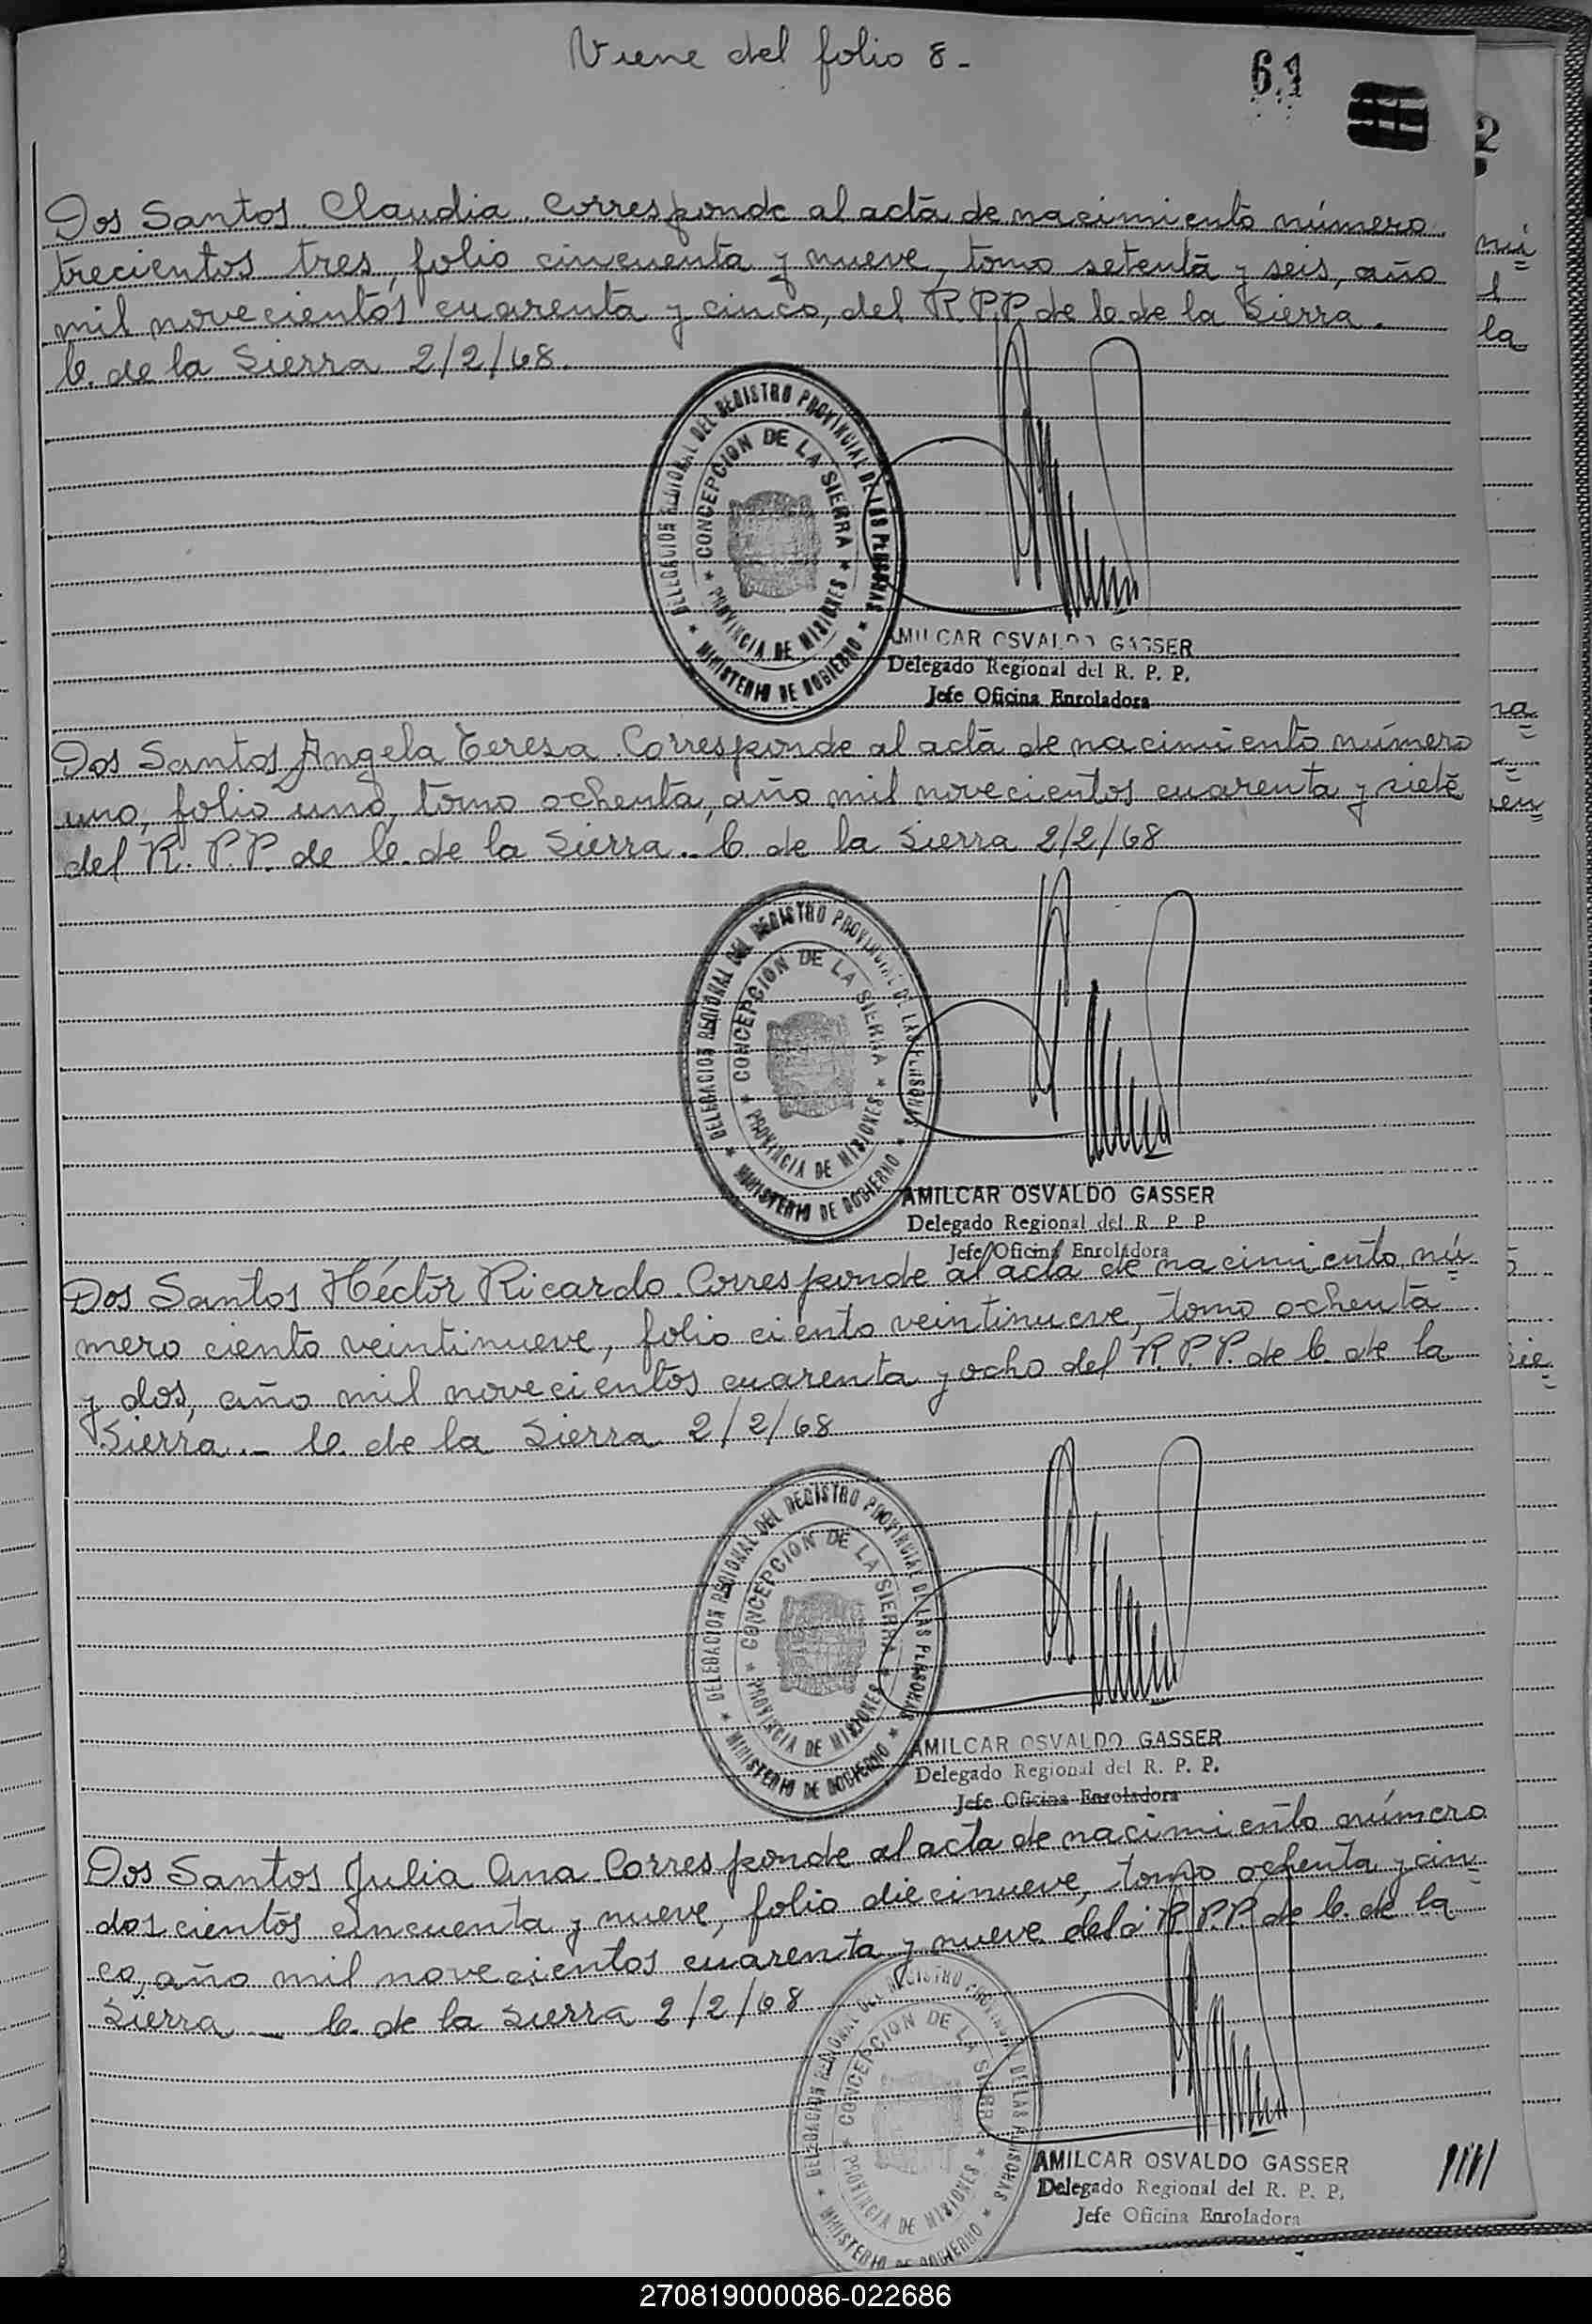 Viene del folio 8 -
61
2
Dos Santos Claudia. Corresponde al acta de nacimiento número
trecientos tres, folio cincuenta y nueve, tomo setenta y seis, año
mil novecientos cuarenta y cinco, del R.P.P. de C. de la Sierra.
C. de la Sierra 2/2/68.
DELEGACION REGIONAL DEL REGISTRO PROVINCIAL DE LAS PERSONAS
CONCEPCION DE LA SIERRA
PROVINCIA DE MISIONES
MINISTERIO DE GOBIERNO
AMILCAR OSVALDO GASSER
Delegado Regional del R. P. P.
Jefe Oficina Enroladora
Dos Santos Angela Teresa. Corresponde al acta de nacimiento número
uno, folio uno, tomo ochenta, año mil novecientos cuarenta y siete
del R. P.P. de C. de la Sierra.- C. de la Sierra 2/2/68
DELEGACION REGIONAL DEL REGISTRO PROVINCIAL DE LAS PERSONAS
CONCEPCION DE LA SIERRA
PROVINCIA DE MISIONES
MINISTERIO DE GOBIERNO
AMILCAR OSVALDO GASSER
Delegado Regional del R. P. P.
Jefe Oficina Enroladora
Dos Santos Héctor Ricardo. Corresponde al acta de nacimiento nú=
mero ciento veintinueve, folio ciento veintinueve, tomo ochenta
y dos, año mil novecientos cuarenta y ocho del R.P.P. de C. de la
Sierra.- C. de la Sierra 2/2/68
DELEGACION REGIONAL DEL REGISTRO PROVINCIAL DE LAS PERSONAS
CONCEPCION DE LA SIERRA
PROVINCIA DE MISIONES
MINISTERIO DE GOBIERNO
AMILCAR OSVALDO GASSER
Delegado Regional del R. P. P.
Jefe Oficina Enroladora
Dos Santos Julia Ana. Corresponde al acta de nacimiento número
doscientos cincuenta y nueve, folio diecinueve, tomo ochenta y cin=
co, año mil novecientos cuarenta y nueve del R.P.P. de C. de la
Sierra.- C. de la Sierra 2/2/68
DELEGACION REGIONAL DEL REGISTRO PROVINCIAL DE LAS PERSONAS
CONCEPCION DE LA SIERRA
PROVINCIA DE MISIONES
MINISTERIO DE GOBIERNO
AMILCAR OSVALDO GASSER
Delegado Regional del R. P. P.
Jefe Oficina Enroladora
270819000086-022686